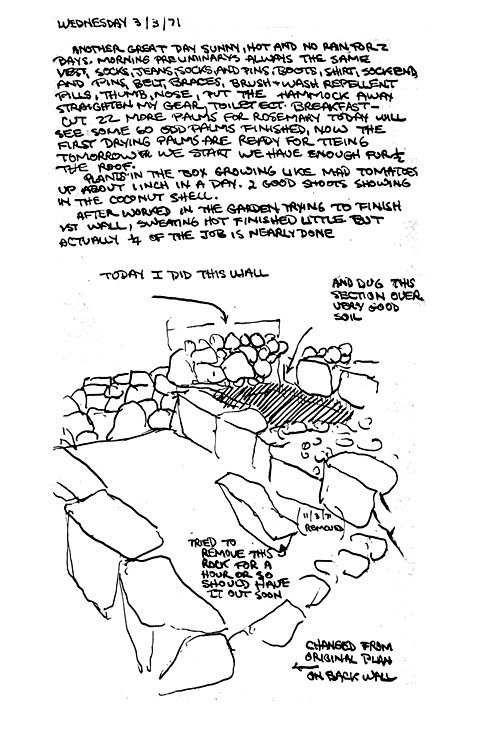 WEDNESDAY 3/3/71
ANOTHER GREAT DAY SUNNY, HOT AND NO RAIN FOR 2
DAYS. MORNING PRELIMINARYS ALWAYS THE SAME
VEST, SOCKS, JEANS, SOCKS, AND PINS, BOOTS, SHIRT, SOCKEND
AND PINS, BELT, BRACES, BRUSH + WASH REPELLENT
PILLS, THUMB, NOSE, PUT THE HAMMOCK AWAY
STRAIGHTEN MY GEAR, TOILET ECT. BREAKFAST -
CUT 22 MORE PALMS FOR ROSEMARY TODAY WILL
SEE SOME 60 ODD PALMS FINISHED, NOW THE
FIRST DRYING PALMS ARE READY FOR TIEING
TOMORROW WE START WE HAVE ENOUGH FUR ½
THE ROOF.
PLANTS IN THE BOX GROWING LIKE MAD TOMATOES
UP ABOUT 1 INCH IN A DAY. 2 GOOD SHOOTS SHOWING
IN THE COCONUT SHELL.
AFTER WORKED IN THE GARDEN TRYING TO FINISH
1ST WALL, SWEATING HOT FINISHED LITTLE BUT
ACTUALLY ¼ OF THE JOB IS NEARLY DONE
TODAY I DID THIS WALL
AND DUG THIS
SECTION OVER
VERY GOOD
SOIL
11/3/71
REMOVED
TRIED TO
REMOVE THIS
ROCK FOR A
HOUR OR SO
SHOULD HAVE
IT OUT SOON
CHANGED FROM
ORIGINAL PLAN
ON BACK WALL